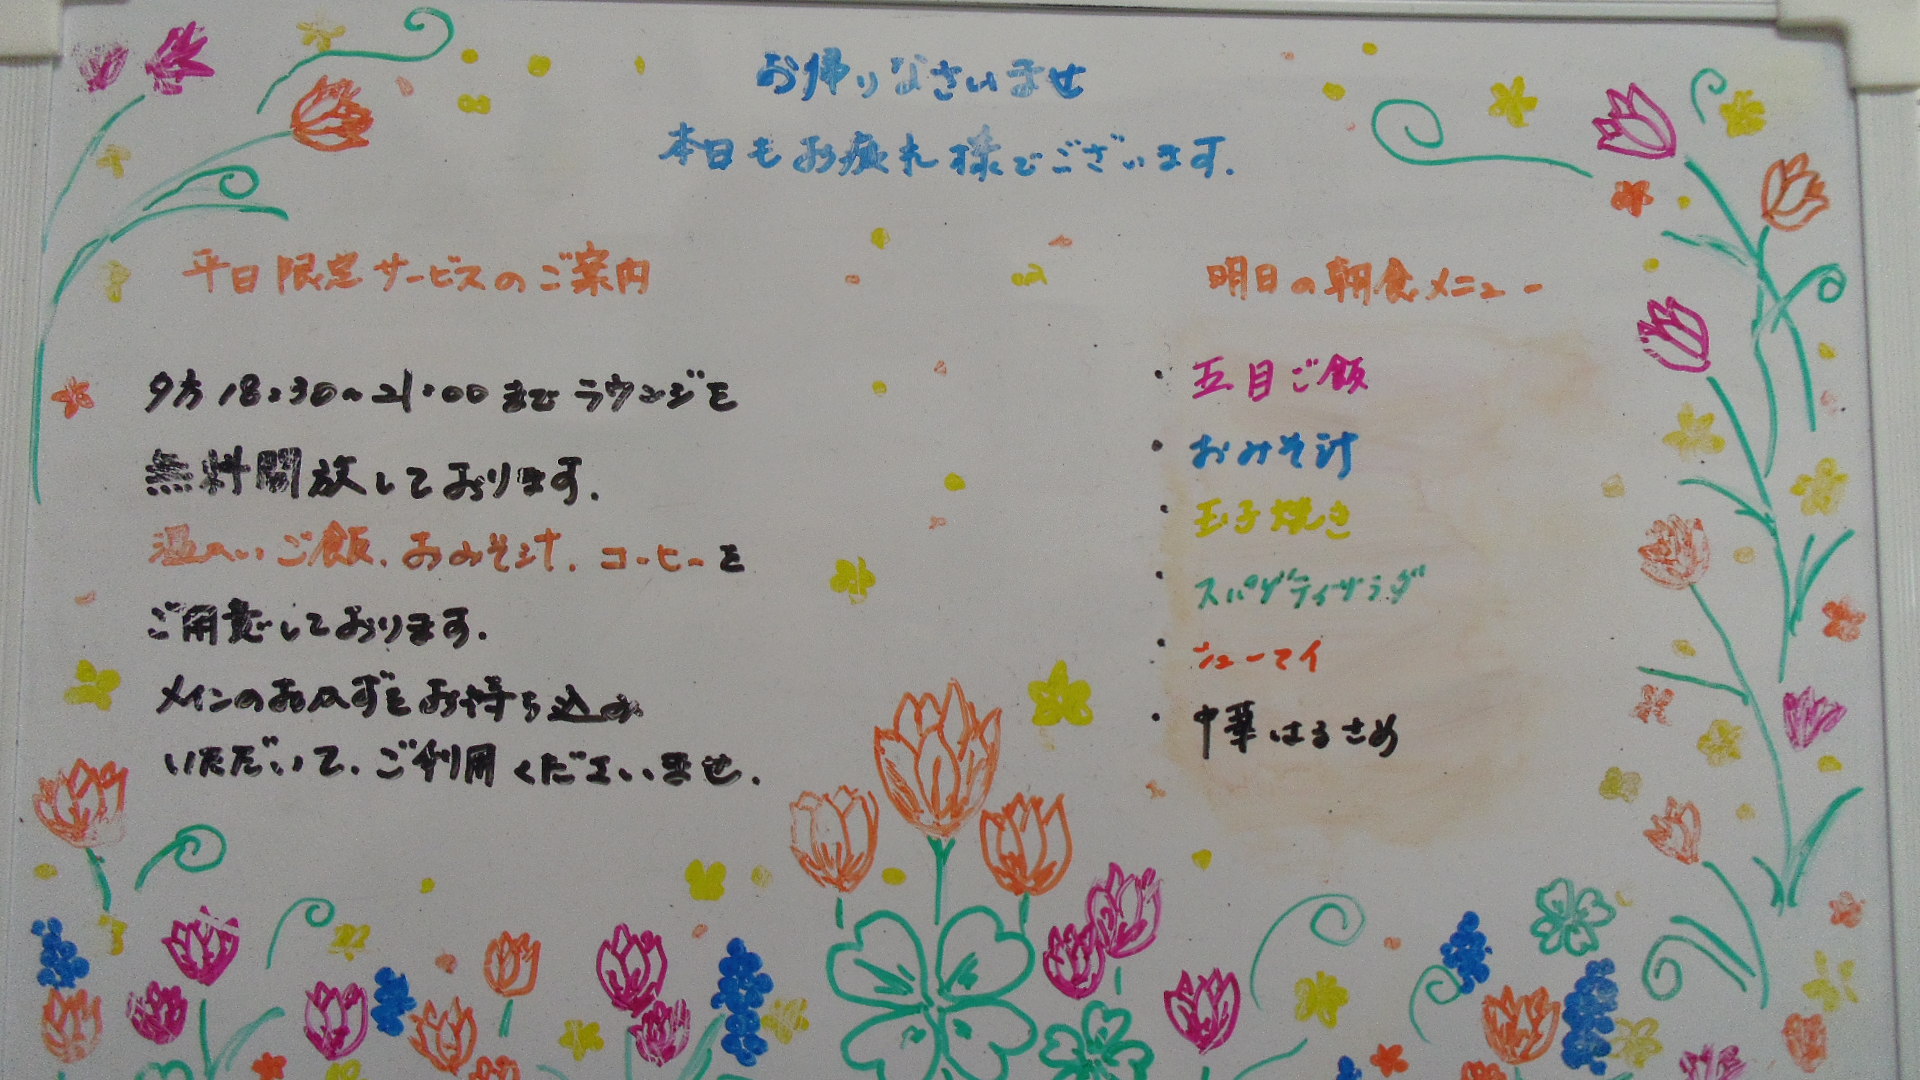 お帰りなさいませ
本日もお疲れ様でございます.
平日限定サービスのご案内
夕方18:30~21:00までラウンジを
無料開放しております.
温かいご飯.おみそ汁.コーヒーを
ご用意しております.
メインのおかずをお持ち込み
いただいて.ご利用くださいませ.
明日の朝食メニュー
・五目ご飯
・おみそ汁
・玉子焼き
・スパゲティサラダ
・シューマイ
・中華はるさめ